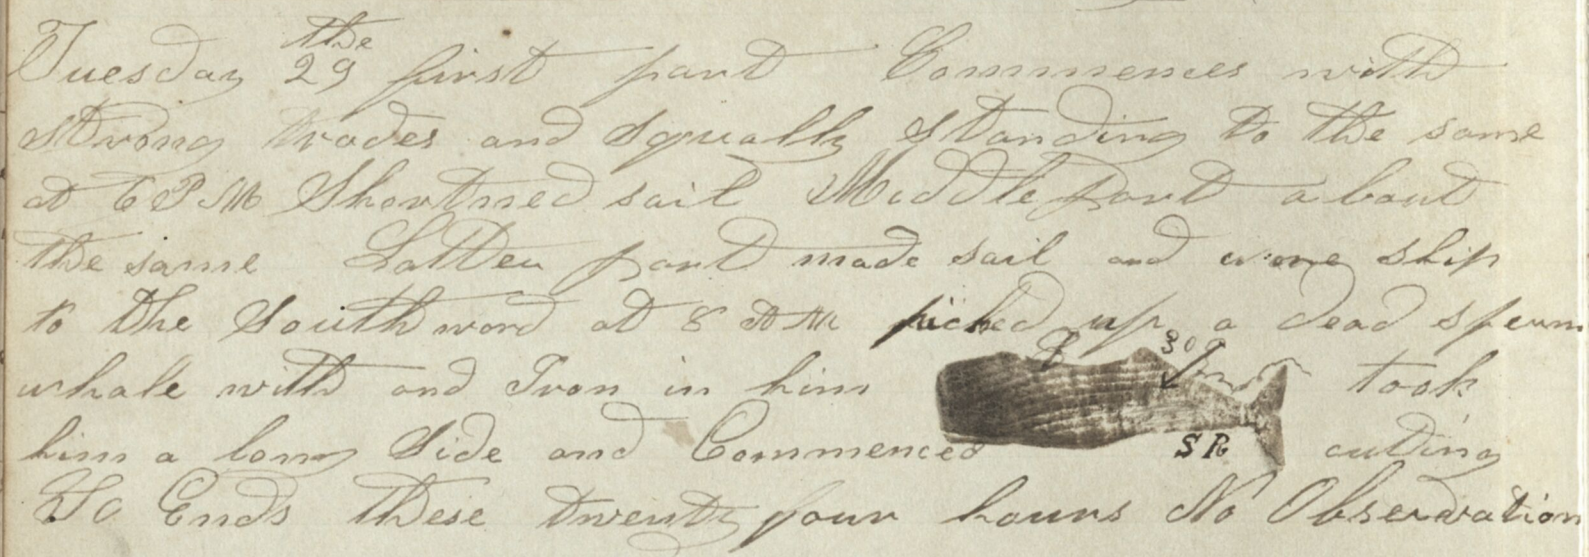 Tuesday 29 the first part Commences with
strong trades and squally Standing to the same
at 6 PM Shortned sail Middle part about
the same Latter part made sail and wore ship
to the Southword at 8 AM picked up a dead sperm
whale with and Iron in him took
30
him a long Side and Commenced cutting
SR
So Ends these twenty four hours No Observation